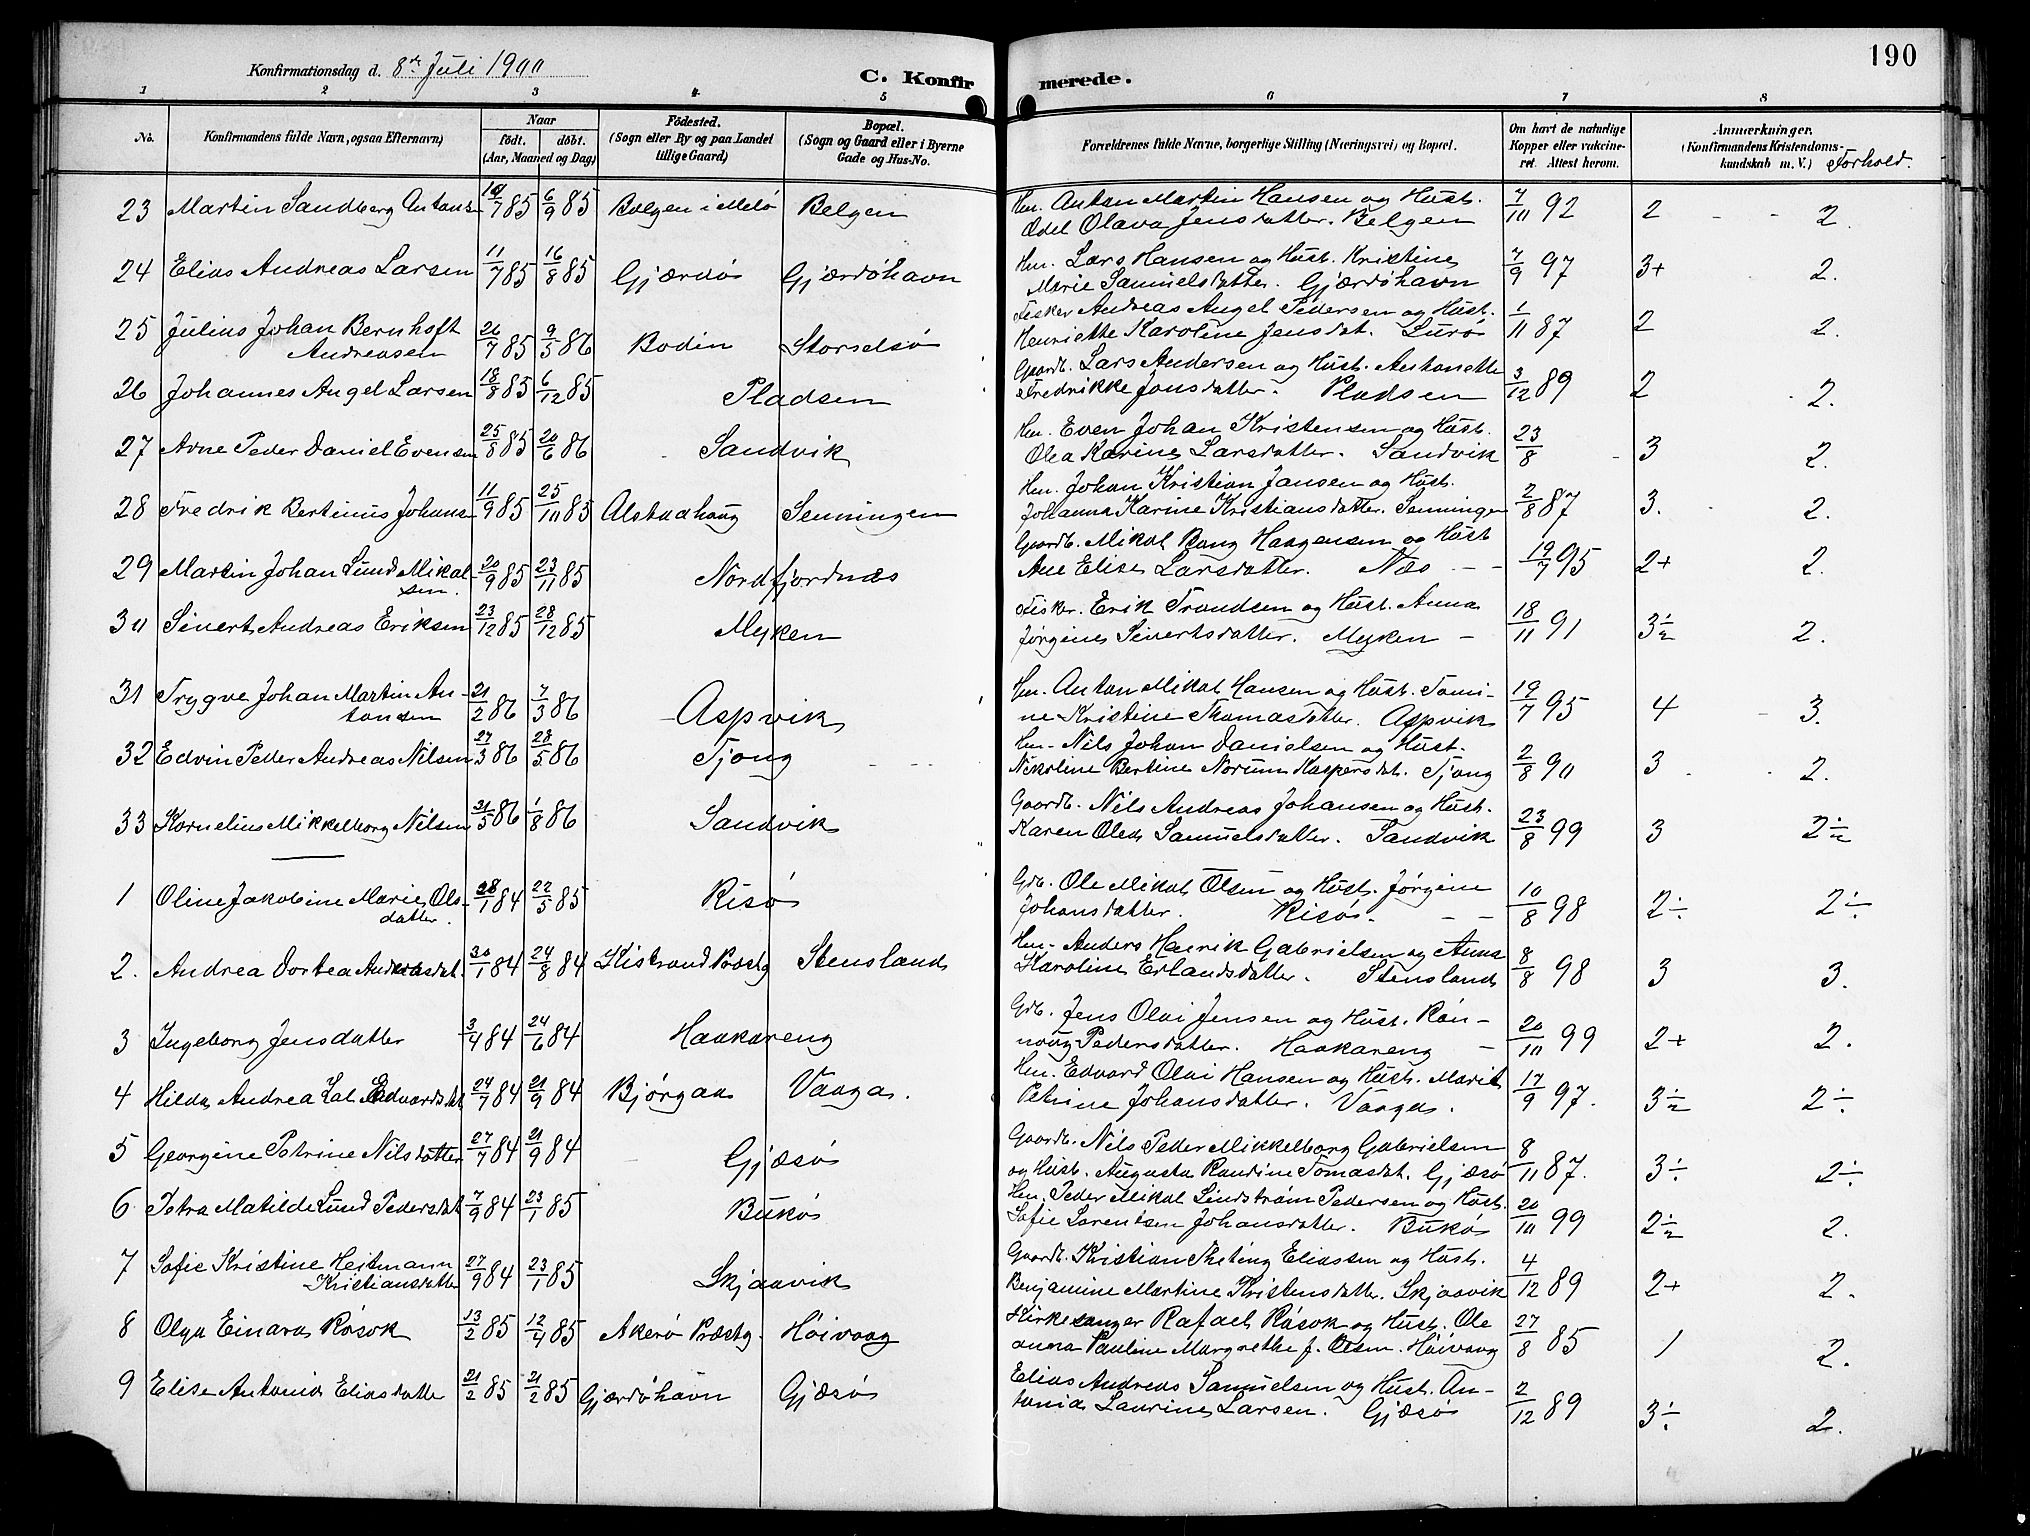 190
Konfirmationsdag d. 8de Juli 1900
C. Konfirmerede.
1 2 3 4 5 6 7 8
No. Konfirmandens fulde Navn, ogsaa Efternavn) Naar født. døbt. (Aar, Maaned og Dag) Fødested. (Sogn eller By og paa Landet tillige Gaard) Bopæl. (Sogn og Gaard eller i Byerne Gade og Hus-No. Forældrenes fulde Navne, borgerlige Stilling (Næringsvei) og Bopæl. Om havt de naturlige Kopper eller vaccineret. Attest herom. Anmærkninger. (Konfirmandens Kristendomskundskab m. V.) Forhold.
23 Martin Sandberg Antons. 10/7 85 6/9 85 Bolgen i Melø Bolgen Hm. Anton Martin Hansen og Hust. Ødel Olava Jensdatter. Bolgen 7/10 92 2 2.
24 Elias Andreas Larsen 11/7 85 16/8 85 Gjærdø Gjærdøhavn Hm. Lars Hansen og Hust. Kristine Marie Samuelsdatter. Gjærdøhavn 7/9 97 3+ 2.
25 Julius Johan Bernhoft Andreasen 26/7 85 9/5 86 Bodin Storselsø Fisker Andreas Angel Pedersen og Hust. Henriette Karoline Jensdat. Lurø 1/11 87 2 2.
26 Johannes Angel Larsen 18/8 85 6/12 85 Pladsen Gaardb. Lars Andersen og Hust. Antonette Fredrikke Jonsdatter. Pladsen 3/12 89 2 2.
27 Arne Peder Daniel Evensen 25/8 85 20/6 86 Sandvik Hm. Even Johan Kristensen og Hust. Olea Karine Larsdatter. Sandvik 23/8 3 2.
28 Fredrik Bertinus Johans. 11/9 85 25/10 85 Alstaahoug Senningen Hm. Johan Kristian Jansen og Hust. Johanna Karine Kristiansdatter. Senningen 2/8 87 3. 2.
29 Martin Johan Lund Mikalsen. 20/9 85 23/11 85 Nordfjordnæs Gaardb. Mikal Bang Haagensen og Hust Ane Elise Larsdatter. Næs 19/7 95 2+ 2.
30 Sivert Andreas Eriksen 23/12 85 28/12 85 Myken Fisker. Erik Trondsen og Hust. Anna Jørgine Sivertsdatter. Myken 18/11 91 3÷ 2.
31 Trygve Johan Martin Antonsen 21/2 86 7/3 86 Aspvik Hm. Anton Mikal Hansen og Hust. Tomine Kristine Thomasdatter. Aspvik 19/7 95 4 3.
32 Edvin Peder Andreas Nilsen 27/3 86 28/5 86 Tjong Hm. Nils Johan Danielsen og Hust. Nikoline Bertine Norum Kaspersdat. Tjong 2/8 90 3 2.
33 Kornelius Mikkelborg Nilsen 21/5 86 1/8 86 Sandvik Gaardb. Nils Andreas Johansen og Hust. Karen Olea Samuelsdatter. Sandvik 23/8 99 3 2÷
1 Oline Jakobine Marie Olsdatter. 28/1 84 22/5 85 Risø Gdb. Ole Mikal Olsen og Hust. Jørgine Johansdatter. Risø. 10/8 98 2÷ 2÷
2. Andrea Dortea Andersdat. 30/1 84 24/8 84 Kistrand Præstg Stensland Hm. Anders Henrik Gabrielsen og Anna Karoline Erlandsdatter. Stensland 8/8 98 3 3.
3 Ingeborg Jensdatter 3/4 84 24/6 84 Haakareng Gdb. Jens Olai Jensen og Hust. Rønnaug Pedersdatter. Haakareng 20/10 99 2+ 2.
4 Hilda Andrea Kat Edvardsdat 24/7 84 21/9 84 Bjørgaa Vaaga. Hm. Edvard Olai Hansen og Hust. Marit Petrine Johansdatter. Vaaga. 17/9 97. 3÷ 2÷
5 Georgine Petrine Nilsdatter 27/7 84 21/9 84 Gjæsø Gaardb. Nils Peder Mikkelborg Gabrielsen og Hust. Augusta Randine Tomasdat. Gjæsø 8/11 87. 3÷ 2÷
6 Petra Matilde Lund Pedersdat 7/9 84 23/1 85 Bukø Hm. Peder Mikal Lindstrøm Pedersen og Hust. Sofie Lorentsen Johansdatter. Bukø 20/10 99 2÷ 2.
7 Sofie Kristine Heitmann Kristiansdatter 27/9 84 23/1 85 Skjaavik Gaardb. Kristian Theting Eliassen og Hust. Benjamine Martine Kristensdatter. Skjaavik 4/12 89 2+ 2.
8 Olga Einara Røsok 13/2 85 12/4 85 Akerø Præstg. Høivaag Kirkesanger Rafael Røsok og Hust. Oleanna Pauline Margrethe f. Olsen. Høivaag 27/8 85 1 2.
9 Elise Antonia Eliasdatte 21/2 85 21/2 85 Gjærdøhavn Gjæsø Elias Andreas Samuelsen og Hust. Antonia Laurine Larsen. Gjæsø 2/12 89 3÷ 2.